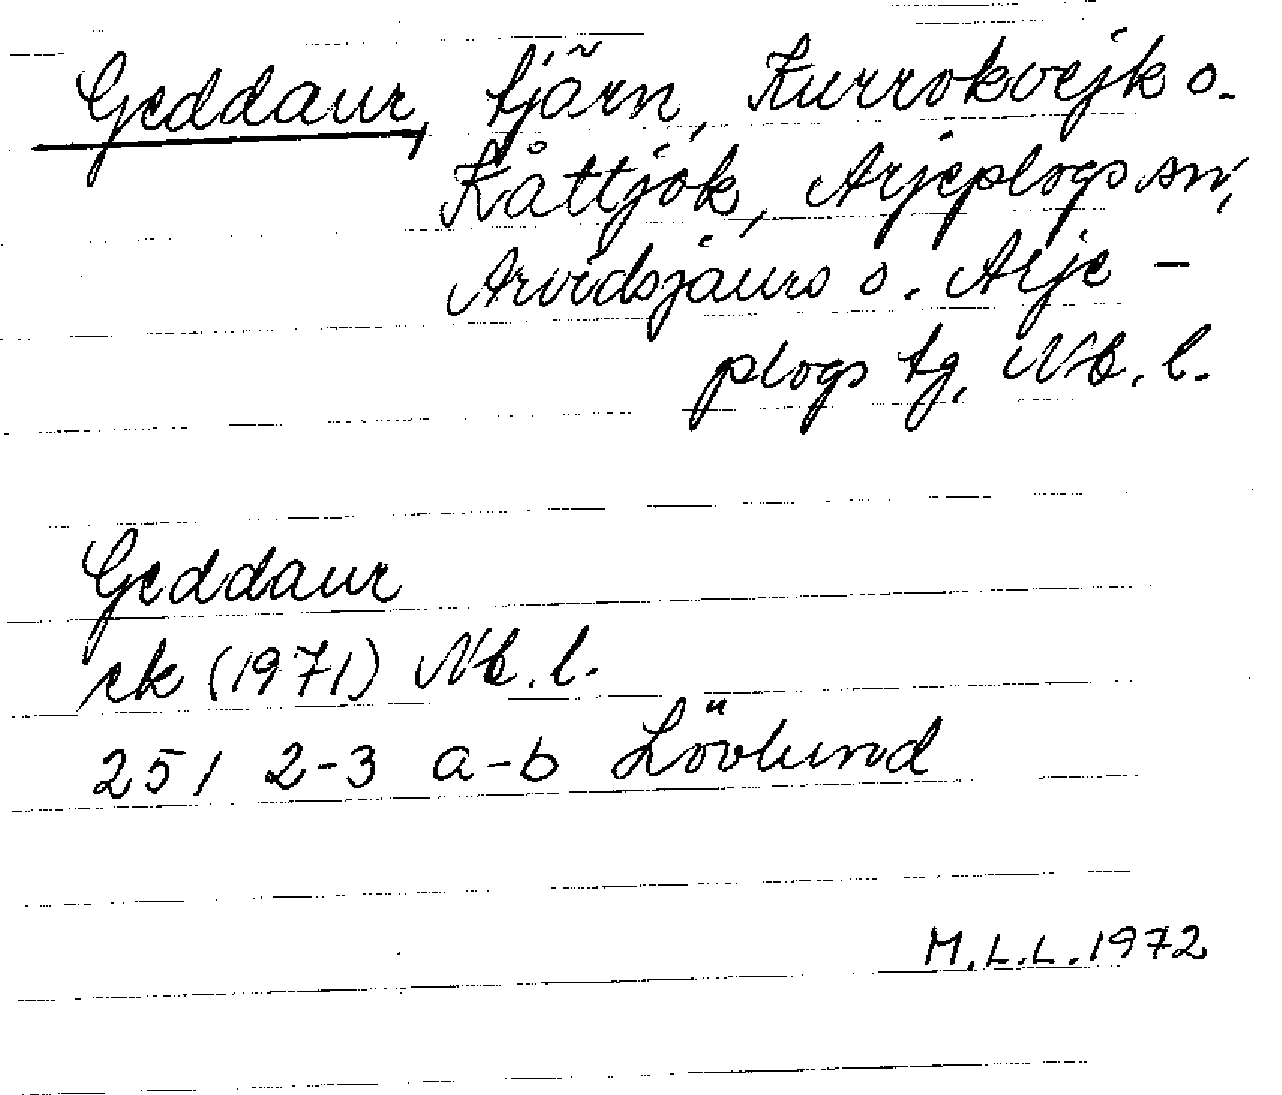 Geddaur, tjärn, Kurrokvejk o.
Kåttjok, Arjeplogs sn,
Arvidsjaurs o. Arje-
plogs tg, Nb. l.
Geddaur
ek (1971) Nb. l.
251 2-3 a-b Lövlund
M.L.L. 1972